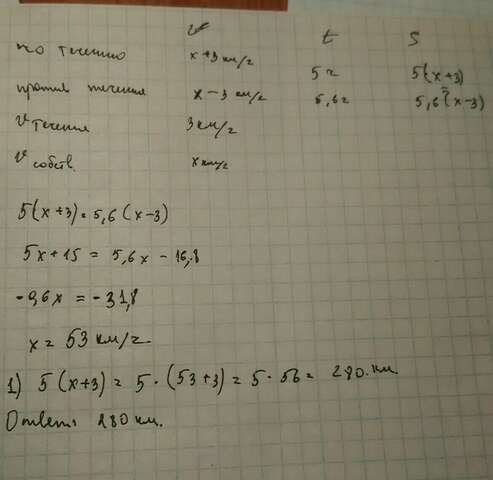 v t S
по течению x+3 км/г 5г 5(x+3)
против течения x-3 км/г 5,6г 5,6(x-3)
v течения 3 км/г
v собств. x км/г
5(x+3)=5,6(x-3)
5x+15=5,6x-16,8
-0,6x=-31,8
x=53 км/г.
1) 5(x+3)=5·(53+3)=5·56=280.км.
Ответ: 280 км.